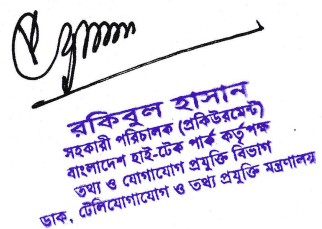 রকিবুল হাসান
সহকারী পরিচালক (প্রকিউরমেন্ট)
বাংলাদেশ হাই-টেক পার্ক কর্তৃপক্ষ
তথ্য ও যোগাযোগ প্রযুক্তি বিভাগ
ডাক, টেলিযোগাযোগ ও তথ্য প্রযুক্তি মন্ত্রণালয়